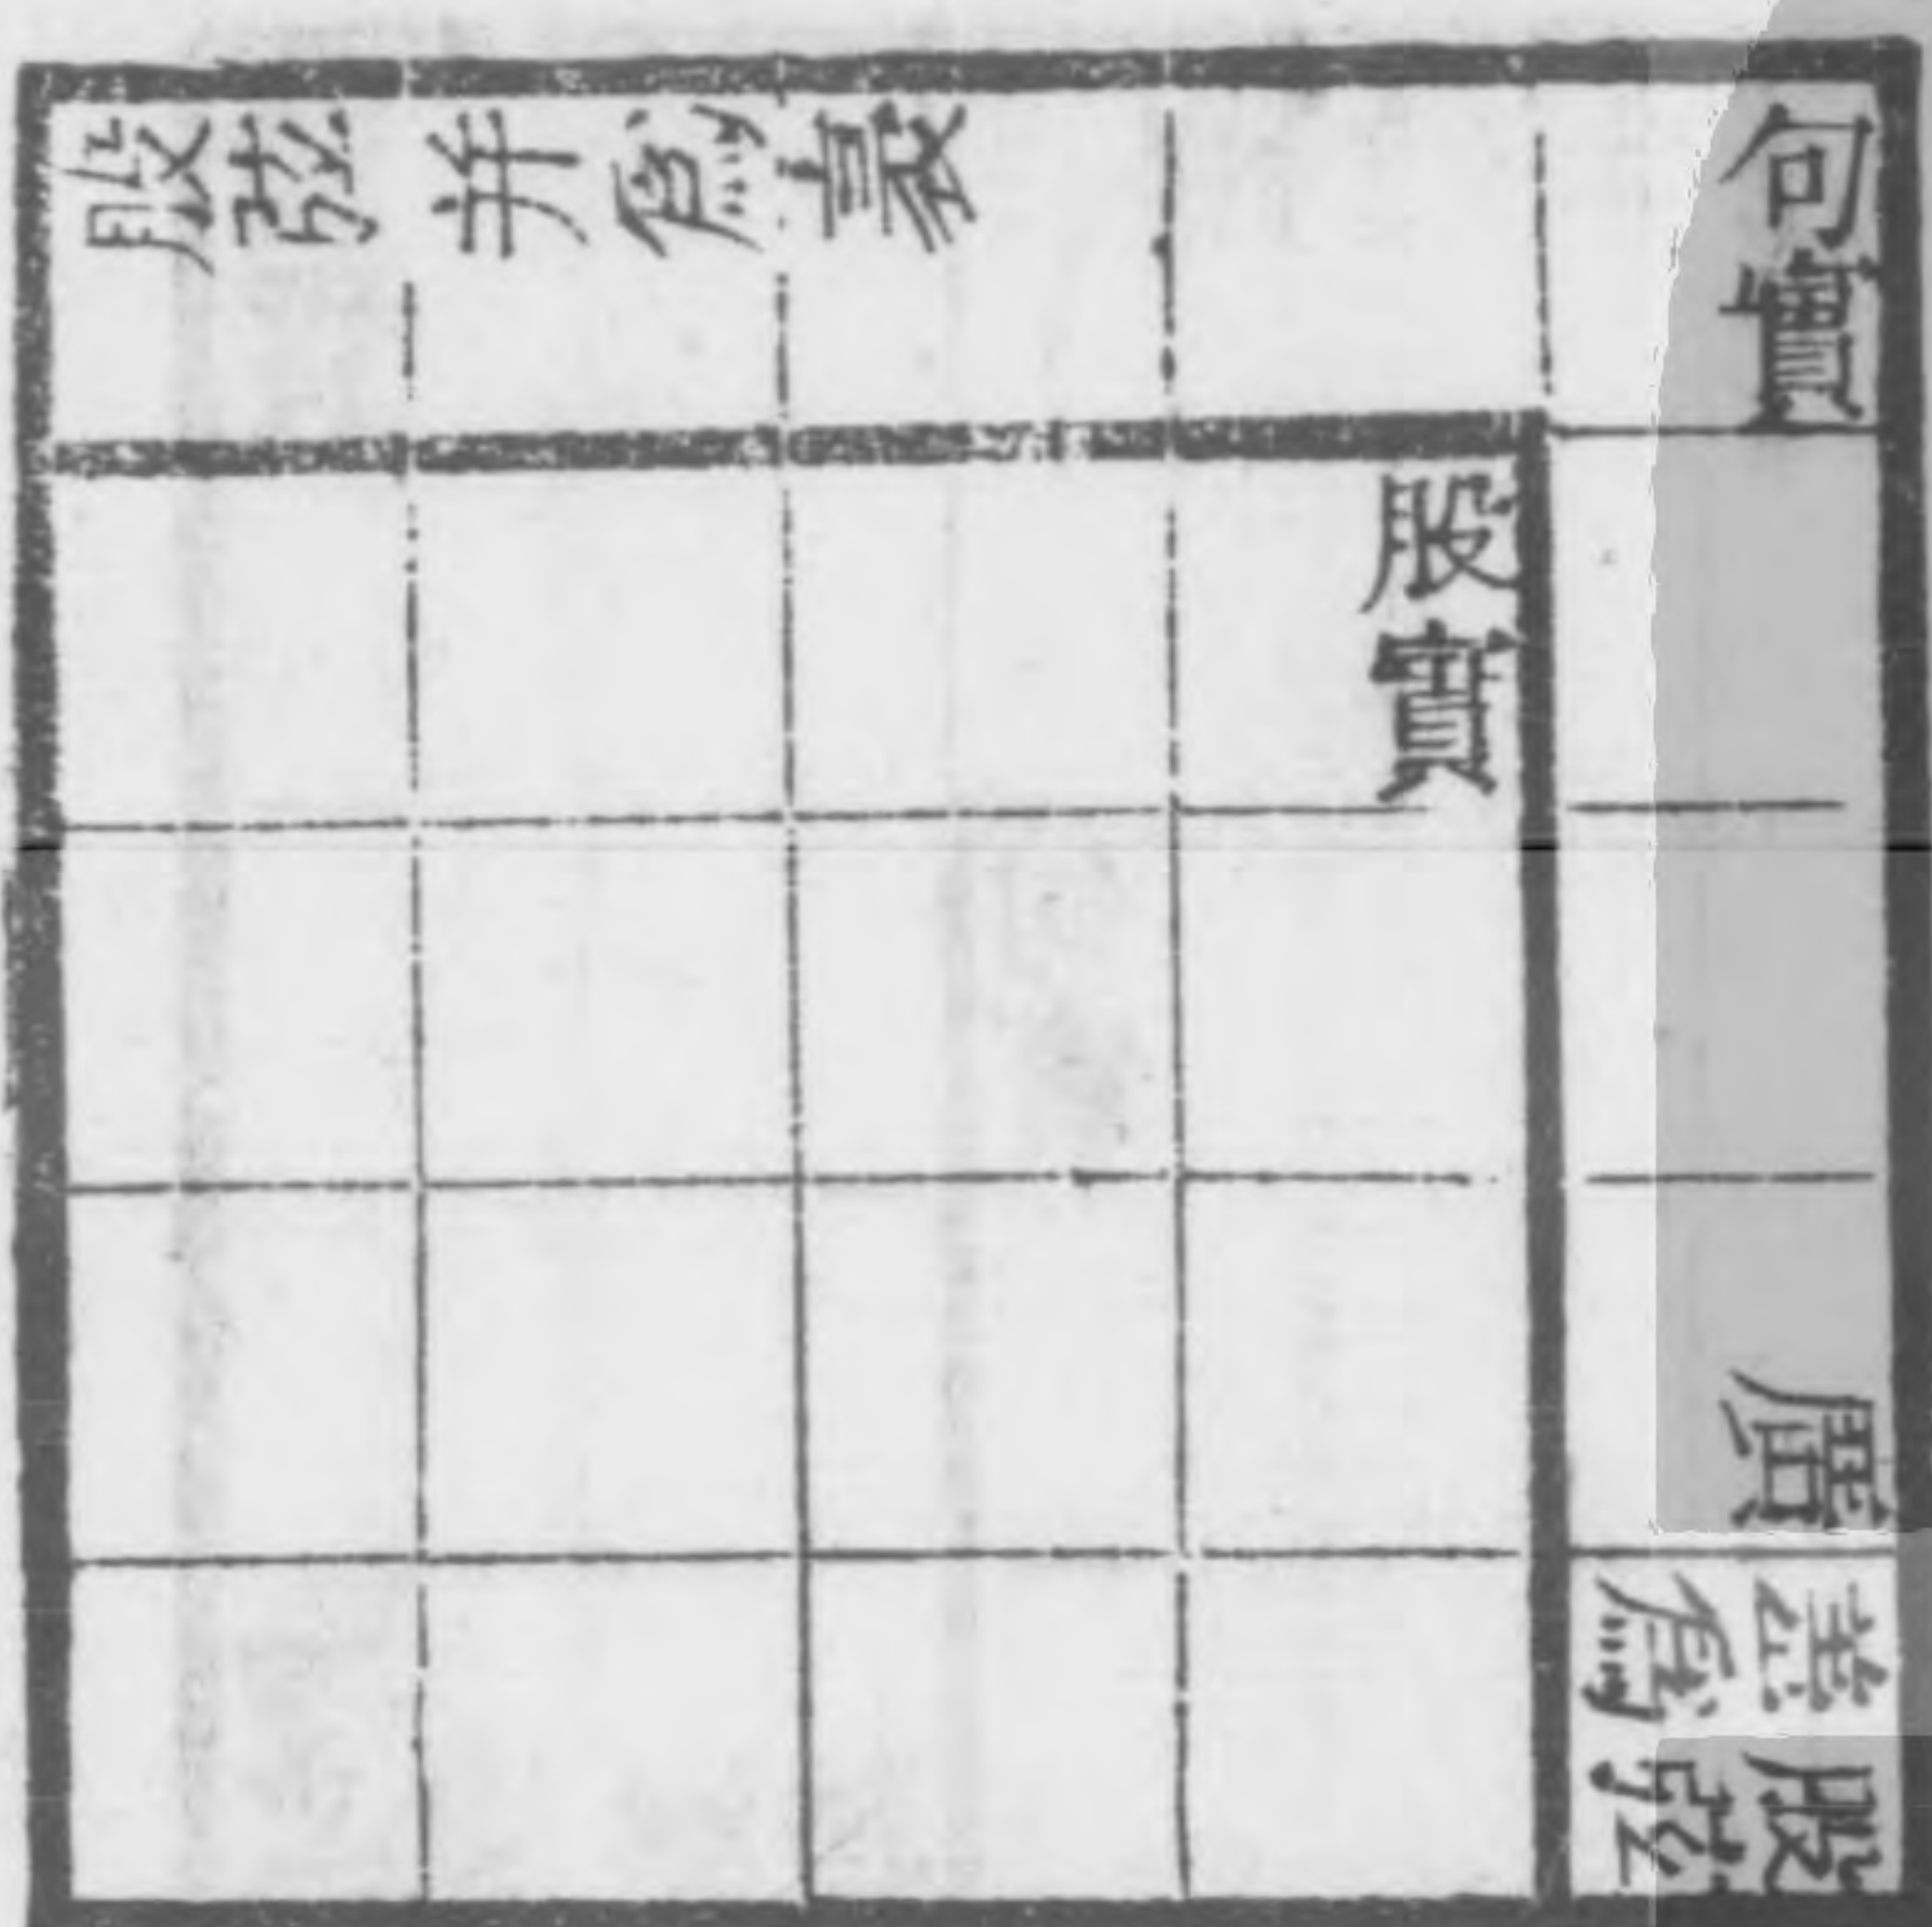 句實
股實
股弦并為袤
股弦
差為
廣